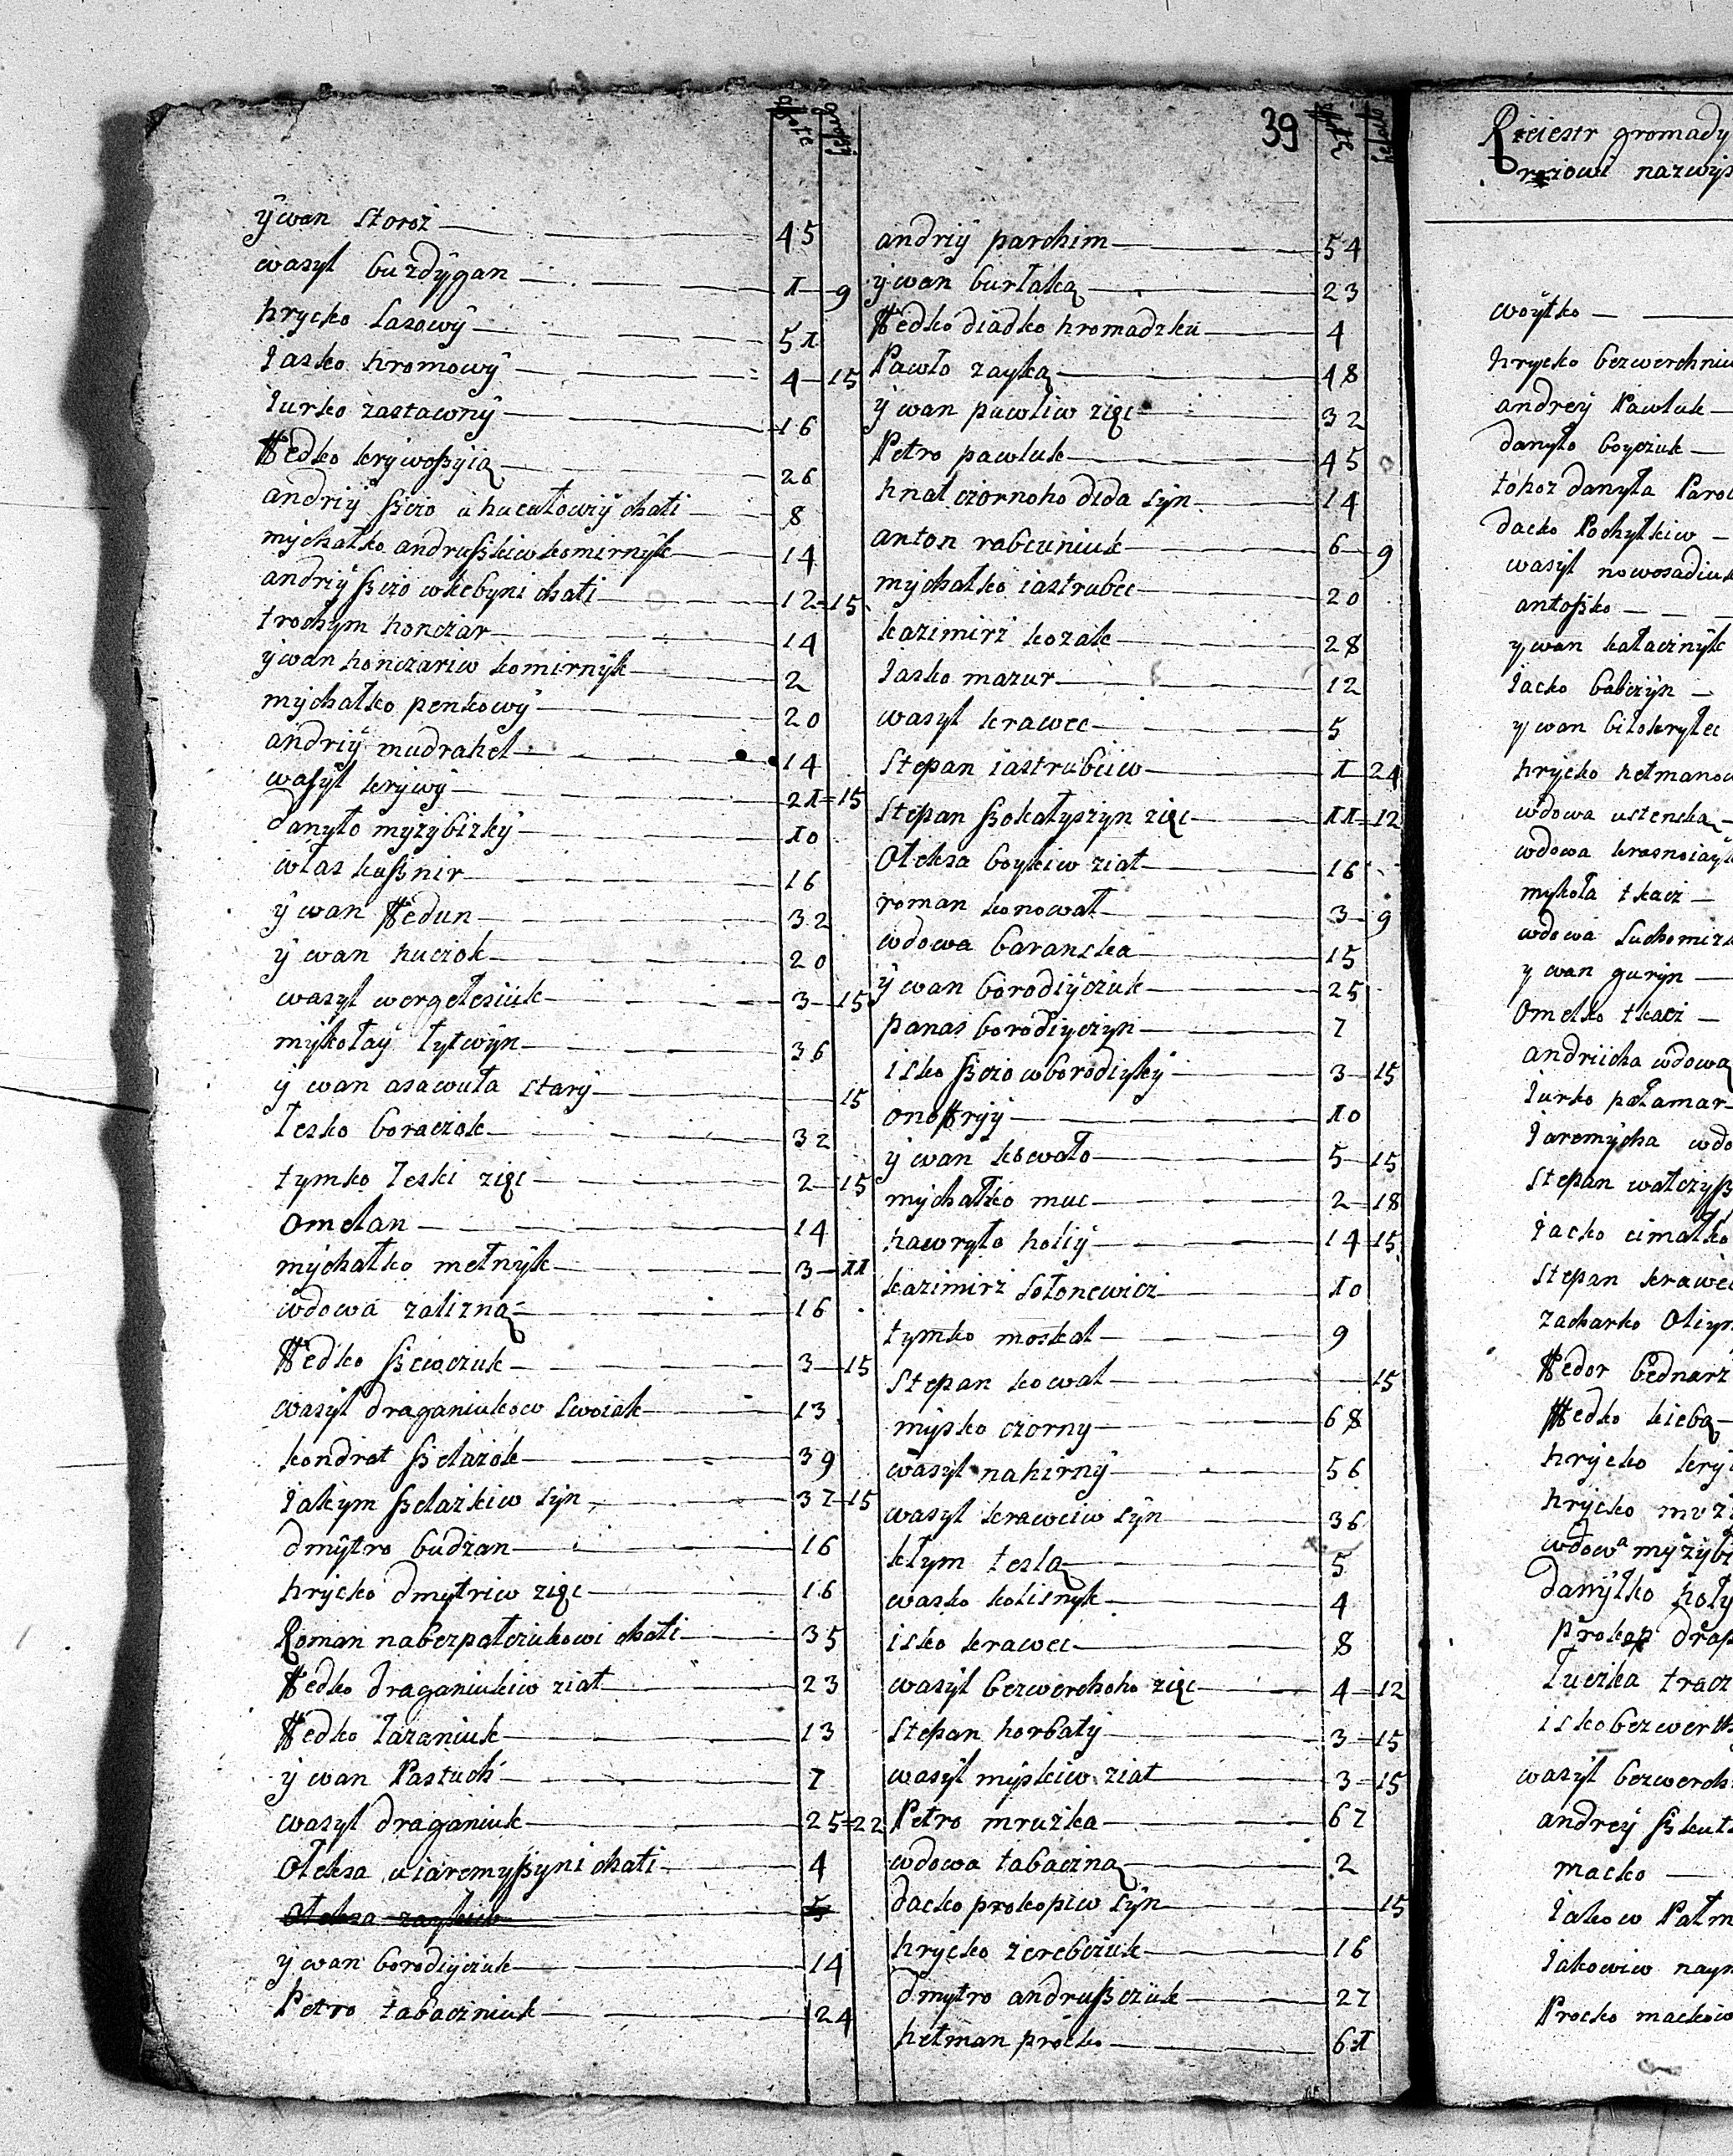 39
ÿwan Storoż 45
wasyl buzdÿgan I 9
hrycko Lasowÿ 5I
Jasko hromowÿ 4 15
Jurko zastawnÿ 16
ffedko krywoßyią 26
andrÿ ßczo u hucułowiÿ chati 8
mÿchałko andrußkiw komirnÿk 14
andrÿ ßczo w kebyni chati 12 15
trochym honczar 14
ÿwan honczariw komirnÿk 2
mÿchałko penkowÿ 20
andrÿ mudrahel 14
wasÿl krÿwÿ 2I 15
danyło mÿzÿbizkÿ I0
włas kußnir 16
ÿwan ffedun 32
ÿwan huczok 20
wasyl wergelesiuk 3 15
mÿkołaÿ łytwÿn 36
ÿwan asawuła starÿ 15
Lesko boraczok 32
tymko Leski zięc 2 15
omelan 14
mÿchałko melnÿk 3 II
wdowa zalizną 16
ffedko ßewczuk 3 15
wasÿl draganiukow swoiak 13
kondrat ßelażok 39
Jakym ßelażkiw sÿn 37 15
dmÿtro budzan 16
hrÿcko dmytriw zięc 16
Roman na bezpalczukowi chati 35
ffedko draganiukiw ziat 23
ffedko Lazaniuk 13
ÿwan Pastuch 7
wasyl draganiuk 25 22
Oleksa u iaremyßyni chati 4
ÿwan borodiÿczuk 14
Petro tabaczniuk 24
andriÿ parchim 54
ÿwan burłaką 23
ffedko diadko hromadzki 4
Pawło zayką 48
ÿwan pawliw zięc 32
Petro pawluk 45
hnat czornoho dida sÿn 14
anton rabcuniuk 6 9
mÿchałko iastrubec 20
kazimirz kozak 28
Jasko mazur 12
wasyl krawec 5
Stepan iastrubciw I 24
Stepan ßokałyszyn zięc II 12
Oleksa boykiw ziat 16
roman konował 3 9
wdowa baranska 15
ÿwan borodiÿczuk 25
panas borodiyczyn 7
isko ßczo w borodiykÿ 3 15
onoffrÿ I0
ÿwan kowało 5 15
mÿchałko muc 2 18
hawryło holiÿ 14 15
kazimirz sołonewicz I0
tymko moskal 9
Stepan kowal 15
mÿsko czornÿ 68
wasyl nahirnÿ 56
wasyl krawciw sÿn 36
kłym teslą 5
wasko kolisnyk 4
isko krawec 8
wasÿl bezwerchoho zięc 4 12
Stepan horbatÿ 3 15
wasÿl mÿskiw ziat 3 15
Petro mruzka 67
wdowa tabaczną 2
dacko prokopiw sÿn 15
hrÿcko zerebczuk 16
dmytro andrußczuk 27
hetman procko 6I
Reiestr gromady
woÿtko
hrycko bezwerchniu
andreÿ Pawluk
danyło boyczuk
tohoz danyła Paro
dacko Pochytkiw
wasÿl nowosadiuk
antoßko
ywan kałacznyk
Jacko babczÿn
ywan biłokryłec
hrÿcko hetmano
wdowa ustenska
wdowa krasnoiay
mykoła tkacz
wdowa Suchomiz
ywan gurÿn
Omelko tkacz
andriicha wdowa
Jurko pałamar
Jaremÿcha wdo
Stepan walczyß
Jacko cimałko
Stepan krawec
zacharko Oliyn
ffedor bednarz
ffedko kiebą
hrÿcko krÿ
hrycko
wdowa mÿzÿbi
danÿłko hoły
Prokop drap
Luczka tracz
isko bezwerch
wasÿl bezwerch
andreÿ ßkut
macko
Jakow Pałm
Jakowiw naym
Procko mackow